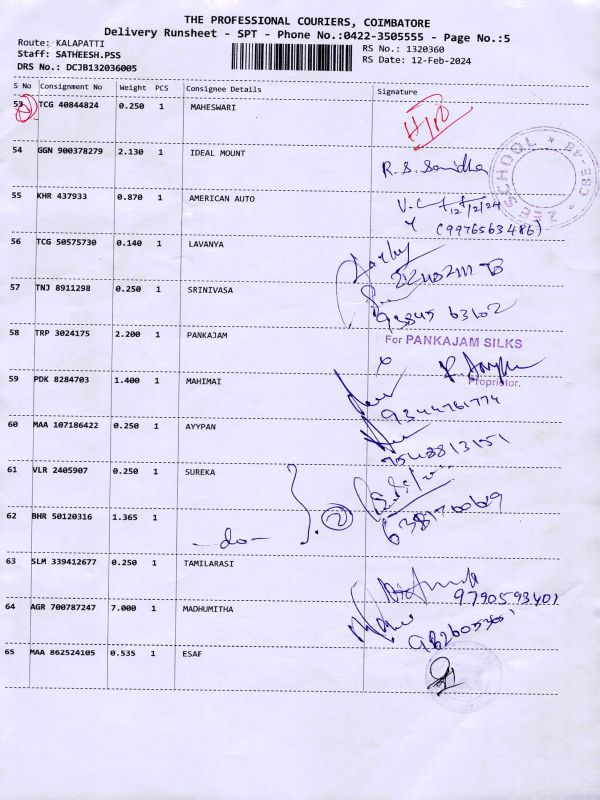 THE PROFESSIONAL COURIERS, COIMBATORE
Delivery Runsheet - SPT - Phone No.:0422-3505555 - Page No.:5
Route: KALAPATTI RS No.: 1320360
Staff: SATHEESH.PSS RS Date: 12-Feb-2024
DRS No.: DCJB132036005
S No Consignment No Weight PCS Consignee Details Signature
53 TCG 40844824 0.250 1 MAHESWARI
54 GGN 900378279 2.130 1 IDEAL MOUNT
ZEE SCHOOL * * CBE-48
55 KHR 437933 0.870 1 AMERICAN AUTO 12/2/24
(9976563486)
56 TCG 50575730 0.140 1 LAVANYA
57 TNJ 8911298 0.250 1 SRINIVASA
93845 63102
58 TRP 3024175 2.200 1 PANKAJAM For PANKAJAM SILKS
Proprietor.
59 PDK 8284703 1.400 1 MAHIMAI
9344761774
60 MAA 107186422 0.250 1 AYYPAN
7548813151
61 VLR 2405907 0.250 1 SUREKA
62 BHR 50120316 1.365 1 -do- 2
63 SLM 339412677 0.250 1 TAMILARASI
9790593401
64 AGR 700787247 7.000 1 MADHUMITHA
65 MAA 862524105 0.535 1 ESAF